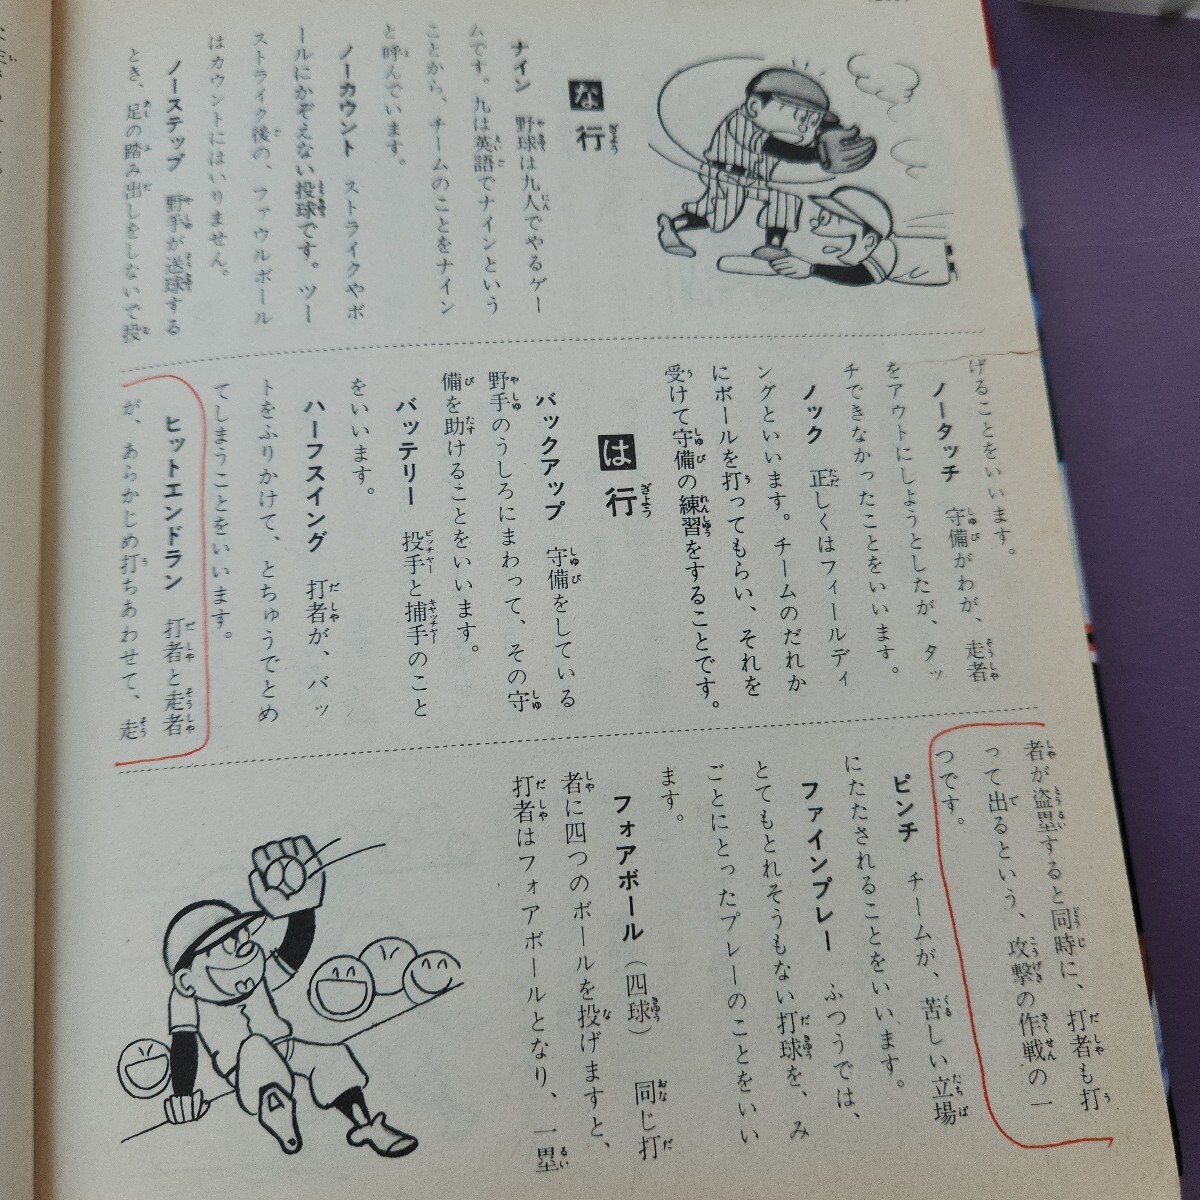 な行
ナイン　野球は九人でやるゲー
ムです。九は英語でナインという
ことから、チームのことをナイン
と呼んでいます。
ノーカウント　ストライクやボ
ールにかぞえない投球です。ツー
ストライク後の、ファウルボール
はカウントにはいりません。
ノーステップ　野手が送球する
とき、足の踏み出しをしないで投
げることをいいます。
ノータッチ　守備がわが、走者
をアウトにしようとしたが、タッ
チできなかったことをいいます。
ノック　正しくはフィールディ
ングといいます。チームのだれか
にボールを打ってもらい、それを
受けて守備の練習をすることです。
は行
バックアップ　守備をしている
野手のうしろにまわって、その守
備を助けることをいいます。
バッテリー　投手と捕手のこと
をいいます。
ハーフスイング　打者が、バッ
トをふりかけて、とちゅうでとめ
てしまうことをいいます。
ヒットエンドラン　打者と走者
が、あらかじめ打ちあわせて、走
者が盗塁すると同時に、打者も打
って出るという、攻撃の作戦の一
つです。
ピンチ　チームが、苦しい立場
にたたされることをいいます。
ファインプレー　ふつうでは、
とてもとれそうもない打球を、み
ごとにとったプレーのことをいい
ます。
フォアボール（四球）　同じ打
者に四つのボールを投げますと、
打者はフォアボールとなり、一塁